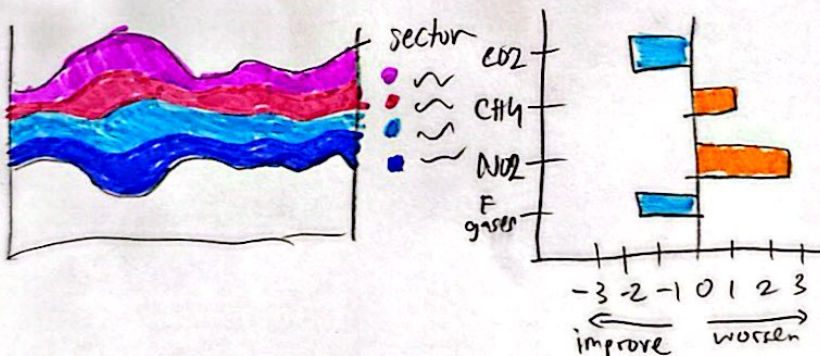 sector
CO2
CH4
NO2
F
gases
-3 -2 -1 0 1 2 3
improve worsen